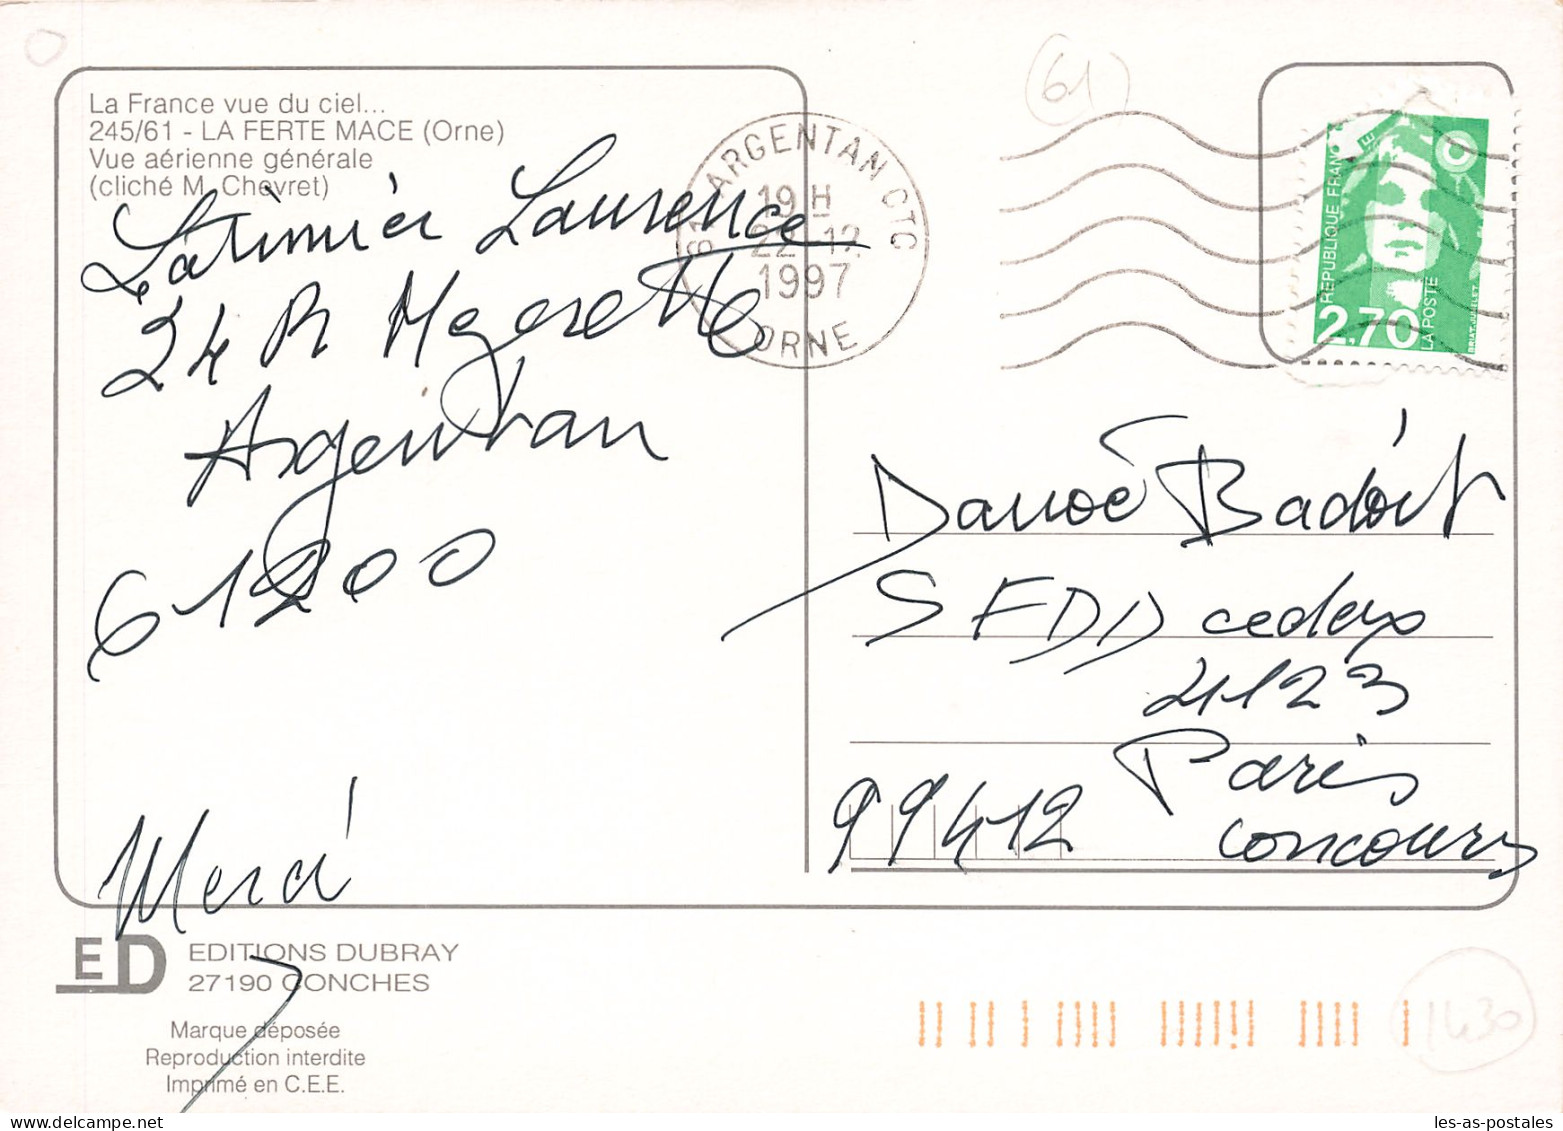 La France vue du ciel...
245/61 - LA FERTE MACE (Orne)
Vue aérienne générale
(cliché M. Chevret)
Latimier Laurence
24 R
Argentan
61200
Merci
61 ARGENTAN CTC
19 H
22-12
1997
ORNE
(61)
REPUBLIQUE FRANC E
2,70
LA POSTE
BRIAT-JUMELET
Badoit
SFDD cedex
4123
Paris
concours
99412
ED
EDITIONS DUBRAY
27190 CONCHES
Marque déposée
Reproduction interdite
Imprimé en C.E.E.
1430
les-as-postales